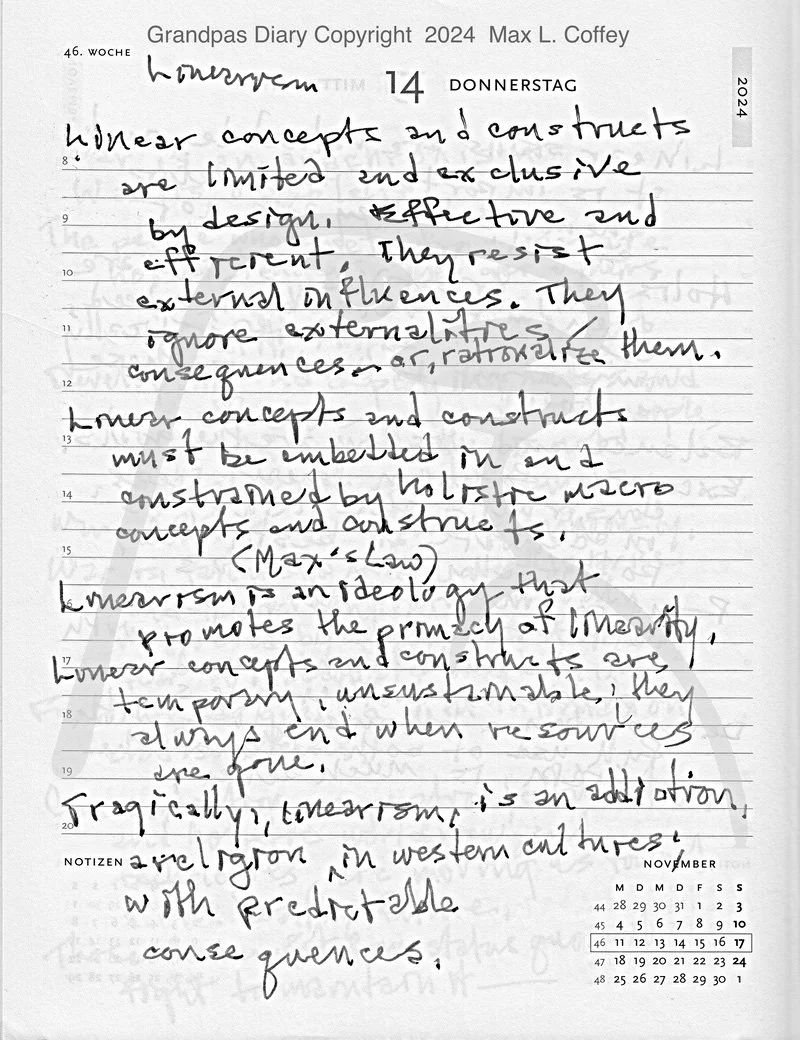 Grandpas Diary Copyright 2024 Max L. Coffey
46. WOCHE
Linearism
14 DONNERSTAG
2024
Linear concepts and constructs
8
are limited and exclusive
9
by design. Effective and
efficient. They resist
10
external influences. They
11
ignore externalities /
consequences - or, rationalize them.
12
Linear concepts and constructs
13
must be embedded in and
14
constrained by holistic macro
concepts and constructs.
15
(Max's Law)
Linearism is an ideology that
promotes the primacy of linearity.
17
Linear concepts and constructs are
temporary, unsustainable, they
18
always end when resources
19
are gone.
Tragically, linearism, is an addiction,
20
NOTIZEN
a religion in western cultures.
with predictable
consequences.
NOVEMBER
M D M D F S S
44 28 29 30 31 1 2 3
45 4 5 6 7 8 9 10
46 11 12 13 14 15 16 17
47 18 19 20 21 22 23 24
48 25 26 27 28 29 30 1